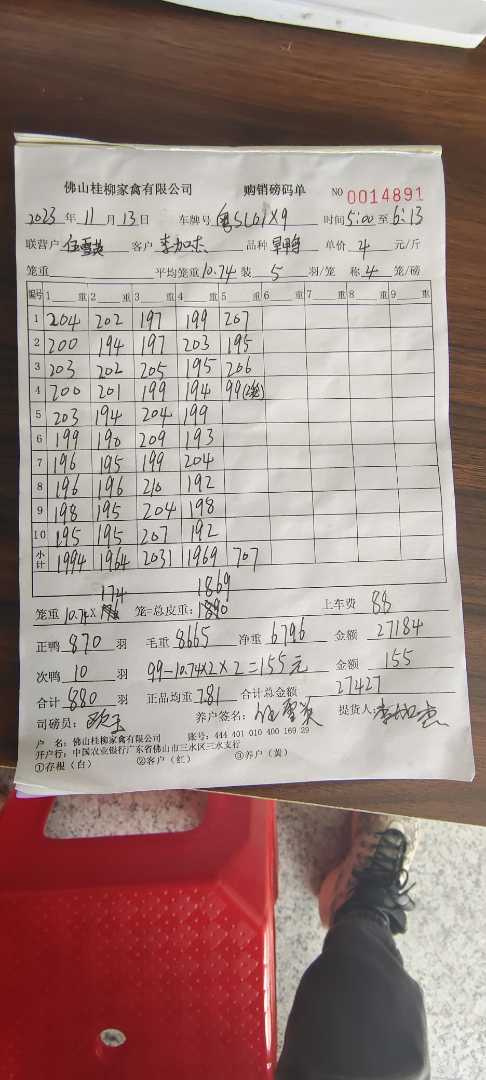 佛山桂柳家禽有限公司 购销磅码单 NO 0014891
2023 年 11 月 13 日 车牌号 粤SL01X9 时间 5:00 至 6:13
联营户 伍雪英 客户 李加杰 品种 单价 4 元/斤
笼重 平均笼重 10.74 装 5 羽/笼 称 4 笼/磅
编号 1 重 2 重 3 重 4 重 5 重 6 重 7 重 8 重 9 重
1 204 202 197 199 207
2 200 194 197 203 195
3 203 202 205 195 206
4 200 201 199 194 99(2笼)
5 203 194 204 199
6 199 190 209 193
7 196 195 199 204
8 196 196 210 192
9 198 195 204 198
10 195 195 207 192
小计 1994 1964 2031 1969 707
174 1869
笼重 10.74 X 笼=总皮重: 上车费 88
正鸭 870 羽 毛重 8665 净重 6796 金额 27184
次鸭 10 羽 99-10.74X2X2=155元 金额 155
合计 880 羽 正品均重 7.81 合计总金额 27427
司磅员: 养户签名: 伍雪英 提货人: 李加杰
户 名: 佛山桂柳家禽有限公司 账号: 444 401 010 400 169 29
开户行: 中国农业银行广东省佛山市三水区三水支行
①存根(白) ②客户(红) ③养户(黄)